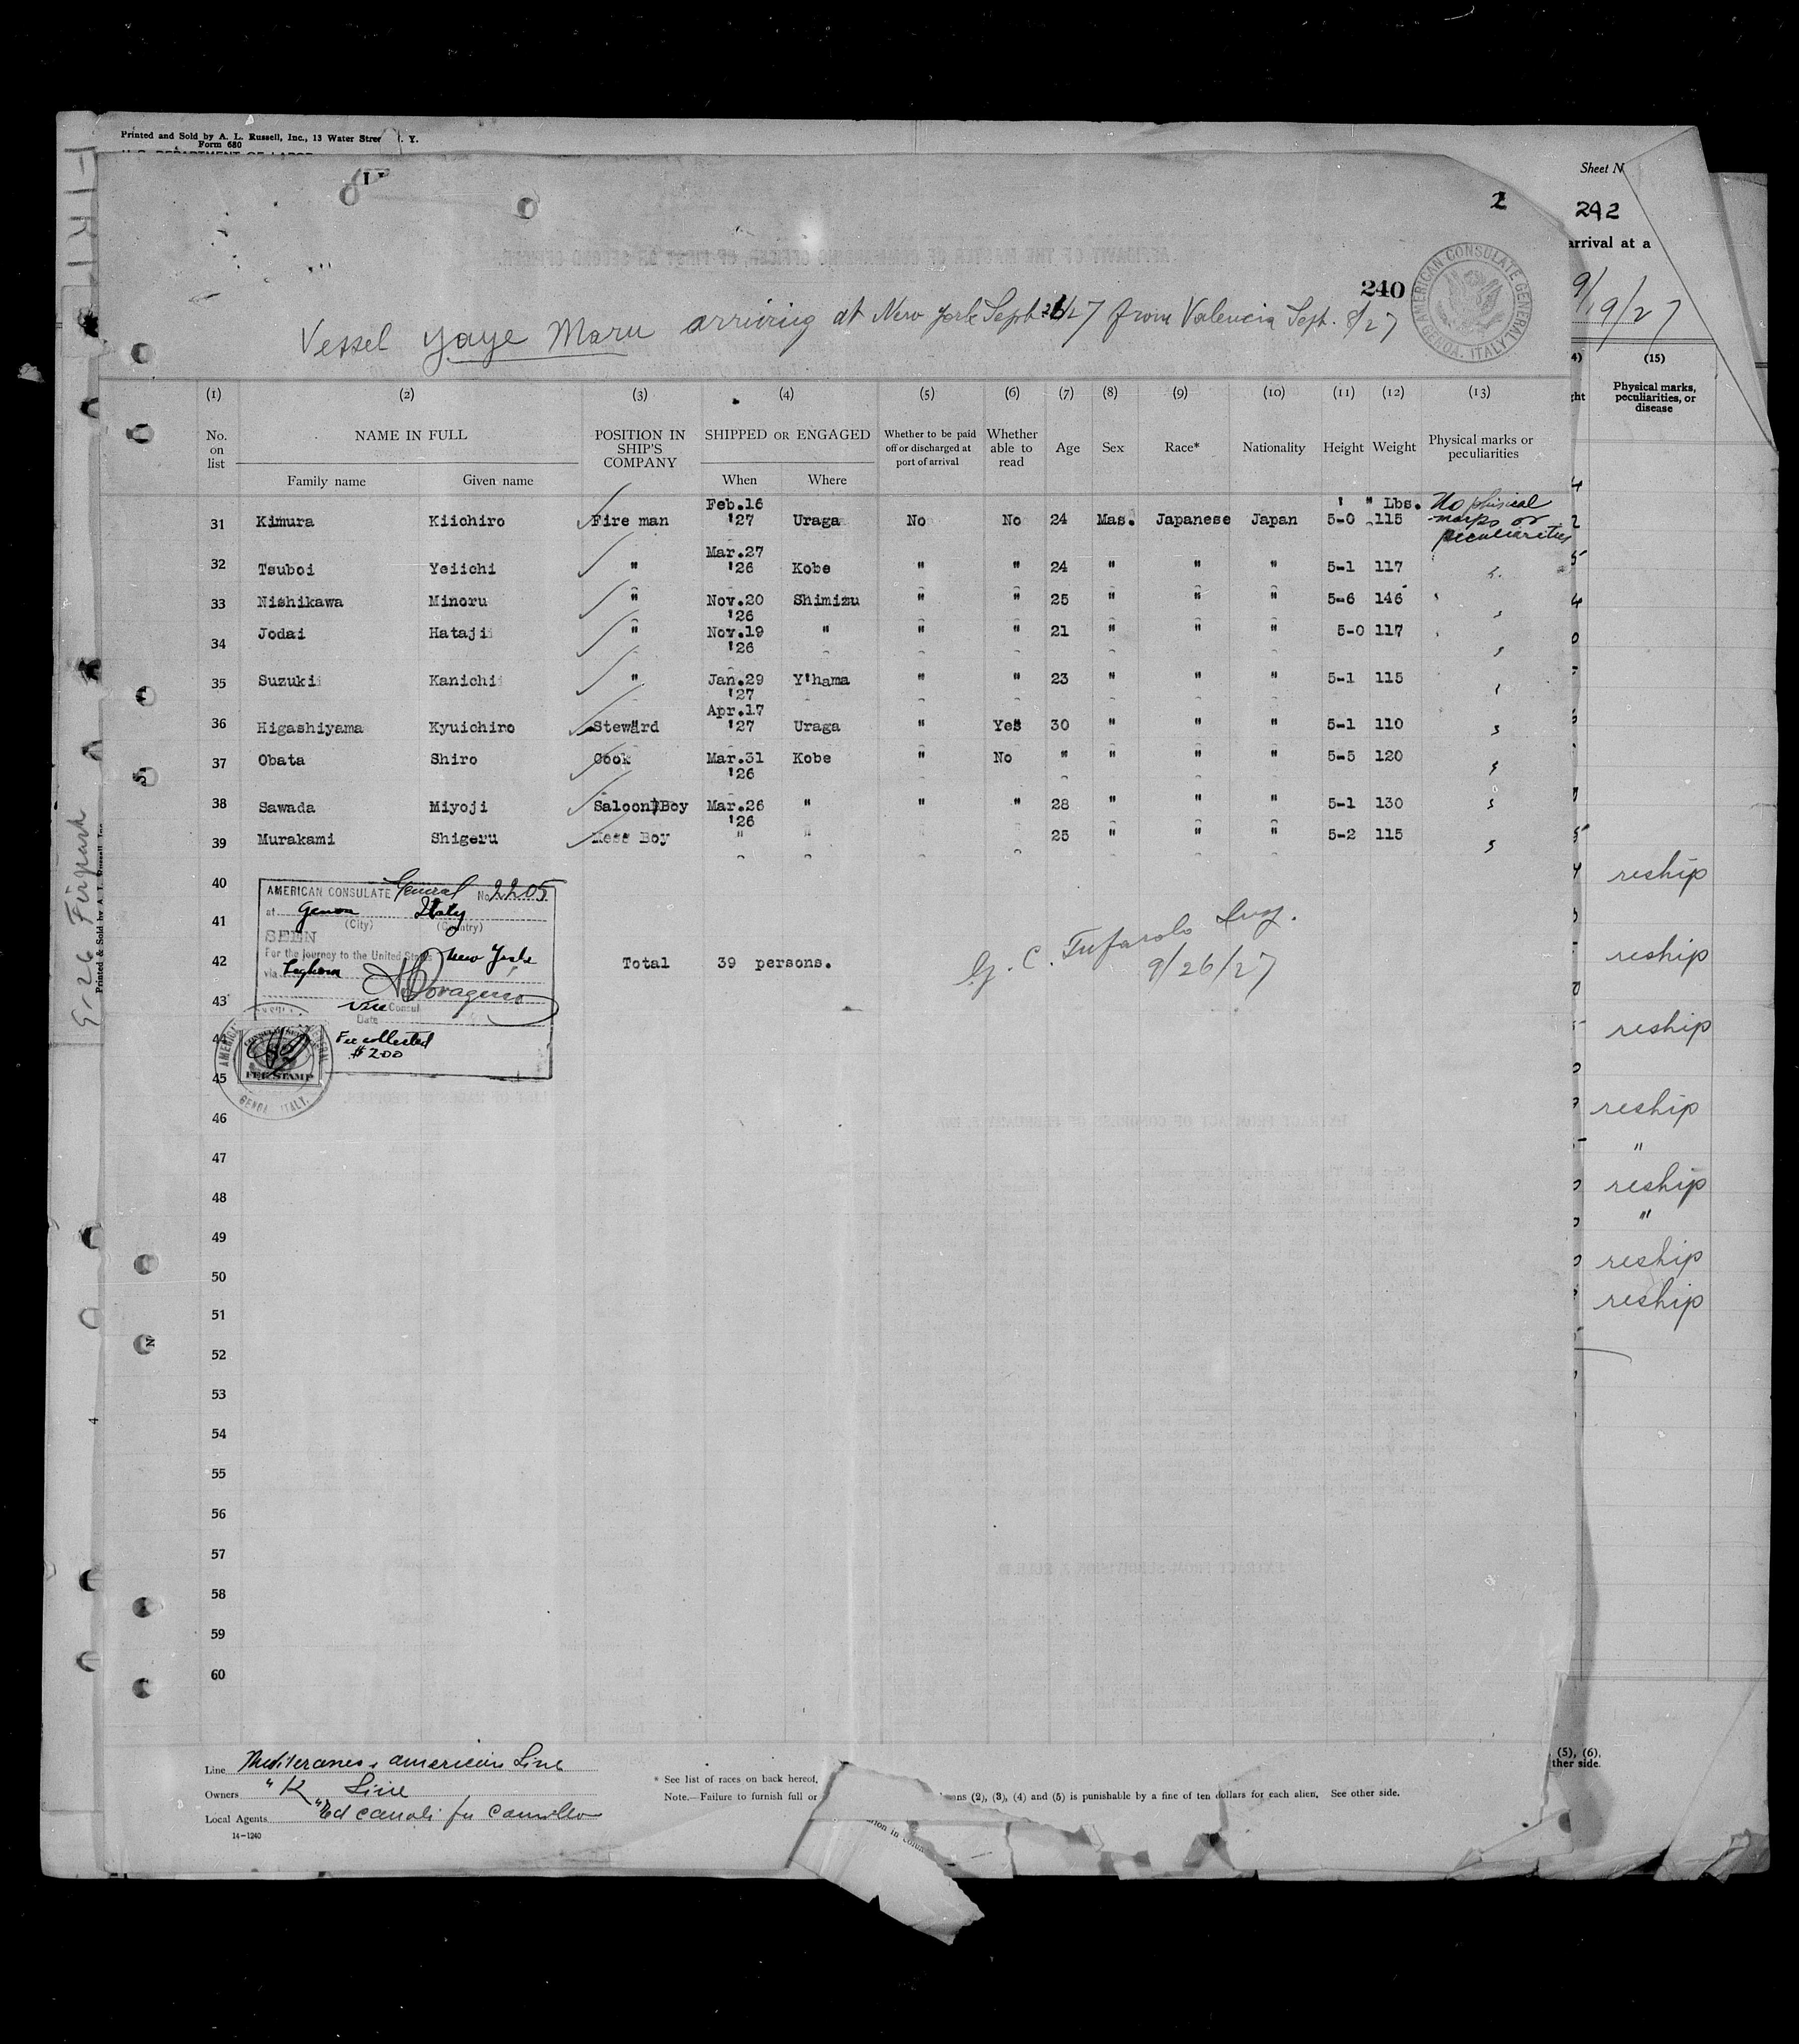 Printed and Sold by A. L. Russell, Inc., 13 Water Stree . Y.
Form 680
Sheet N
2
292
arrival at a
240
9/19/27
AMERICAN CONSULATE GENERAL
GENOA, ITALY
Vessel Yaye Maru arriving at New York Sept. 26/27 from Valencia Sept. 8/27
(1) (2) (3) (4) (5) (6) (7) (8) (9) (10) (11) (12) (13)
4) (15)
No. on list NAME IN FULL POSITION IN SHIP'S COMPANY SHIPPED OR ENGAGED Whether to be paid off or discharged at port of arrival Whether able to read Age Sex Race* Nationality Height Weight Physical marks or peculiarities
ght Physical marks, peculiarities, or disease
Family name Given name When Where
31 Kimura Kiichiro Fire man Feb.16 '27 Uraga No No 24 Mas. Japanese Japan 5-0 115 ' " Lbs. No phisical marks or peculiarities
32 Tsuboi Yeiichi " Mar.27 '26 Kobe " " 24 " " " 5-1 117
33 Nishikawa Minoru " Nov.20 '26 Shimizu " " 25 " " " 5-6 146
34 Jodai Hataji " Nov.19 '26 " " " 21 " " " 5-0 117
35 Suzuki Kanichi " Jan.29 '27 Y'hama " " 23 " " " 5-1 115
36 Higashiyama Kyuichiro Steward Apr.17 '27 Uraga " Yes 30 " " " 5-1 110
37 Obata Shiro Cook Mar.31 '26 Kobe " No " " " " 5-5 120
38 Sawada Miyoji Saloon Boy Mar.26 '26 " " " 28 " " " 5-1 130
39 Murakami Shigeru Mess Boy " " " " 25 " " " 5-2 115
40
41
42 Total 39 persons.
43
44
45
46
47
48
49
50
51
52
53
54
55
56
57
58
59
60
AMERICAN CONSULATE General No. 2205
at Genoa Italy
(City) (Country)
SEEN
For the journey to the United States New York
via Leghorn
Vice Consul
Date
Fee collected
$2.00
FEE STAMP
GENOA ITALY.
G. C. Tufarolo Insp.
9/26/27
reship
reship
reship
reship
"
reship
"
reship
reship
Line Mediteranes american Line
Owners " K Line
Local Agents "Ed Canali fu Camillo
14-1240
* See list of races on back hereof,
Note.—Failure to furnish full or
ns (2), (3), (4) and (5) is punishable by a fine of ten dollars for each alien. See other side.
(5), (6).
ther side.